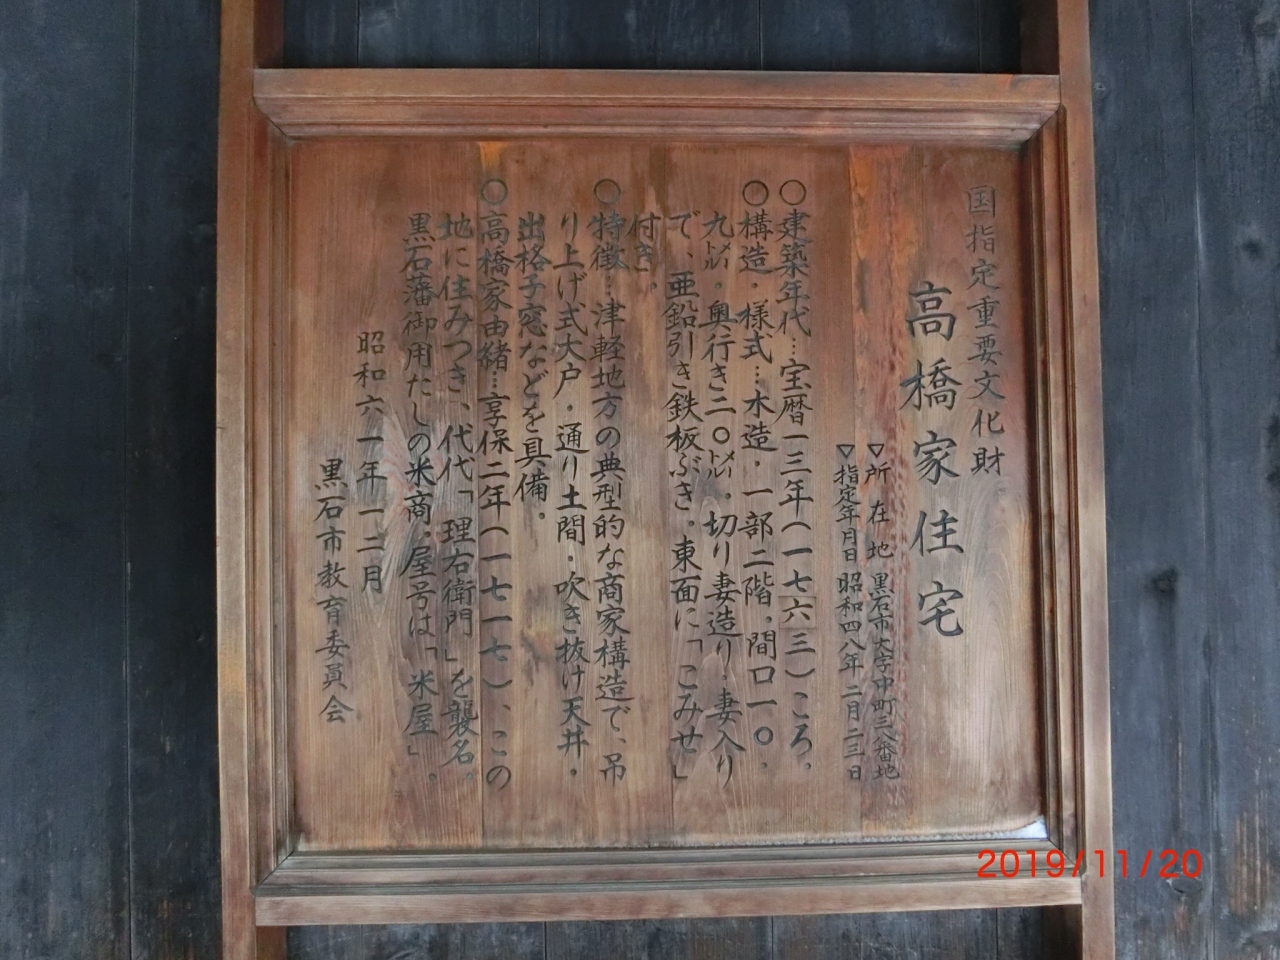 国指定重要文化財
高橋家住宅
▽所在地 黒石市大字中町三八番地
▽指定年月日 昭和四八年二月二三日
○建築年代…宝暦一三年(一七六三)ころ。
○構造・様式…木造・一部二階。間口一〇・
九㍍・奥行き二〇㍍・切り妻造り・妻入り
で、亜鉛引き鉄板ぶき。東面に「こみせ」
付き。
○特徴…津軽地方の典型的な商家構造で、吊
り上げ式大戸・通り土間・吹き抜け天井・
出格子窓などを具備。
○高橋家由緒…享保二年(一七一七)、この
地に住みつき、代代「理右衛門」を襲名。
黒石藩御用たしの米商。屋号は「米屋」。
昭和六一年一二月
黒石市教育委員会
2019/11/20